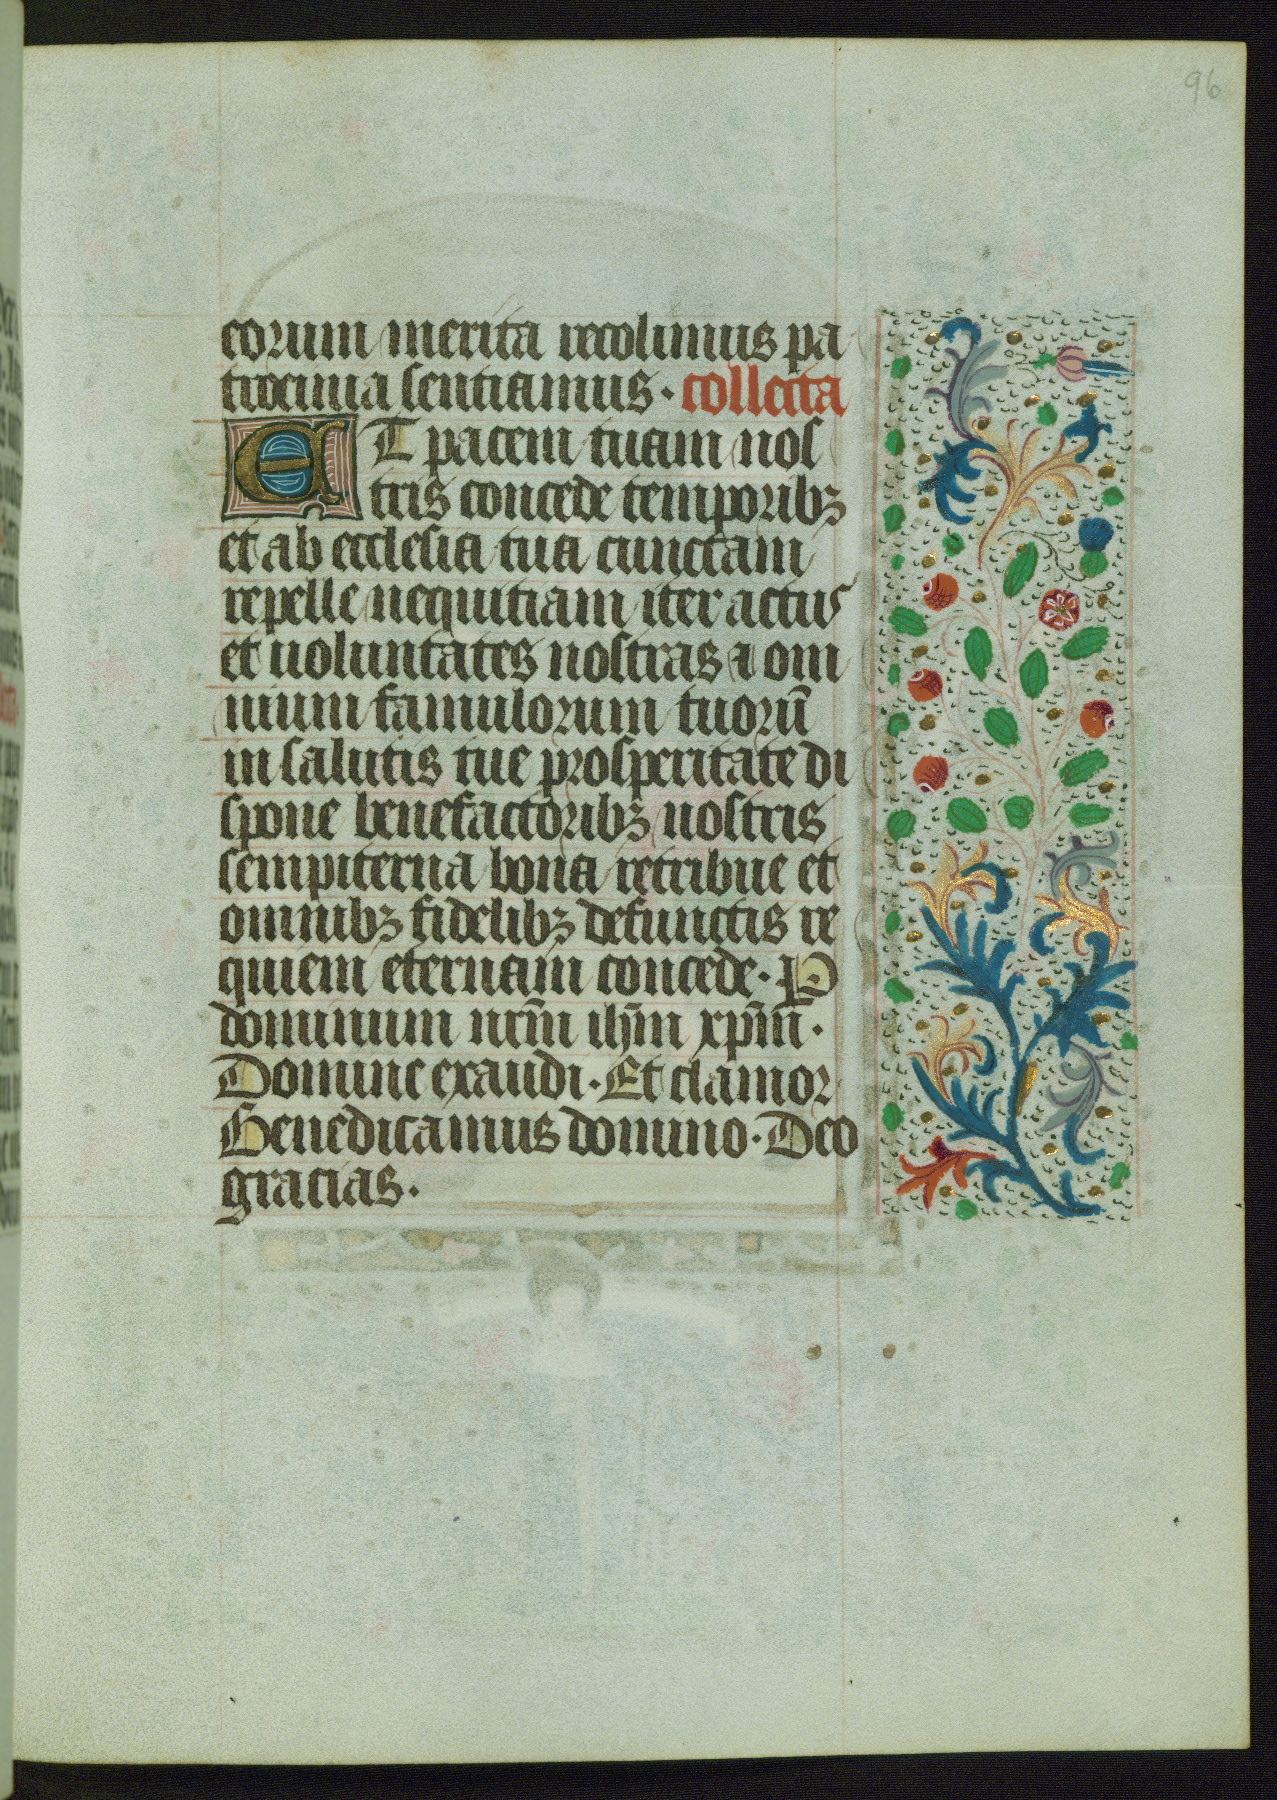 96
eorum merita recolimus pa
trocinia sentiamus · collecta
ET pacem tuam nos
tris concede temporibꝫ
et ab ecclesia tua cunctam
repelle nequitiam iter actus
et uoluntates nostras ⁊ om
nium famulorum tuorū
in salutis tue prosperitate di
spone benefactoribꝫ nostris
sempiterna bona retribue et
omnibꝫ fidelibꝫ defunctis re
quiem eternam concede · P
dominum nr̄m ih̄m xp̄m ·
Domine exaudi · Et clamor
Benedicamus domino · Deo
gracias ·